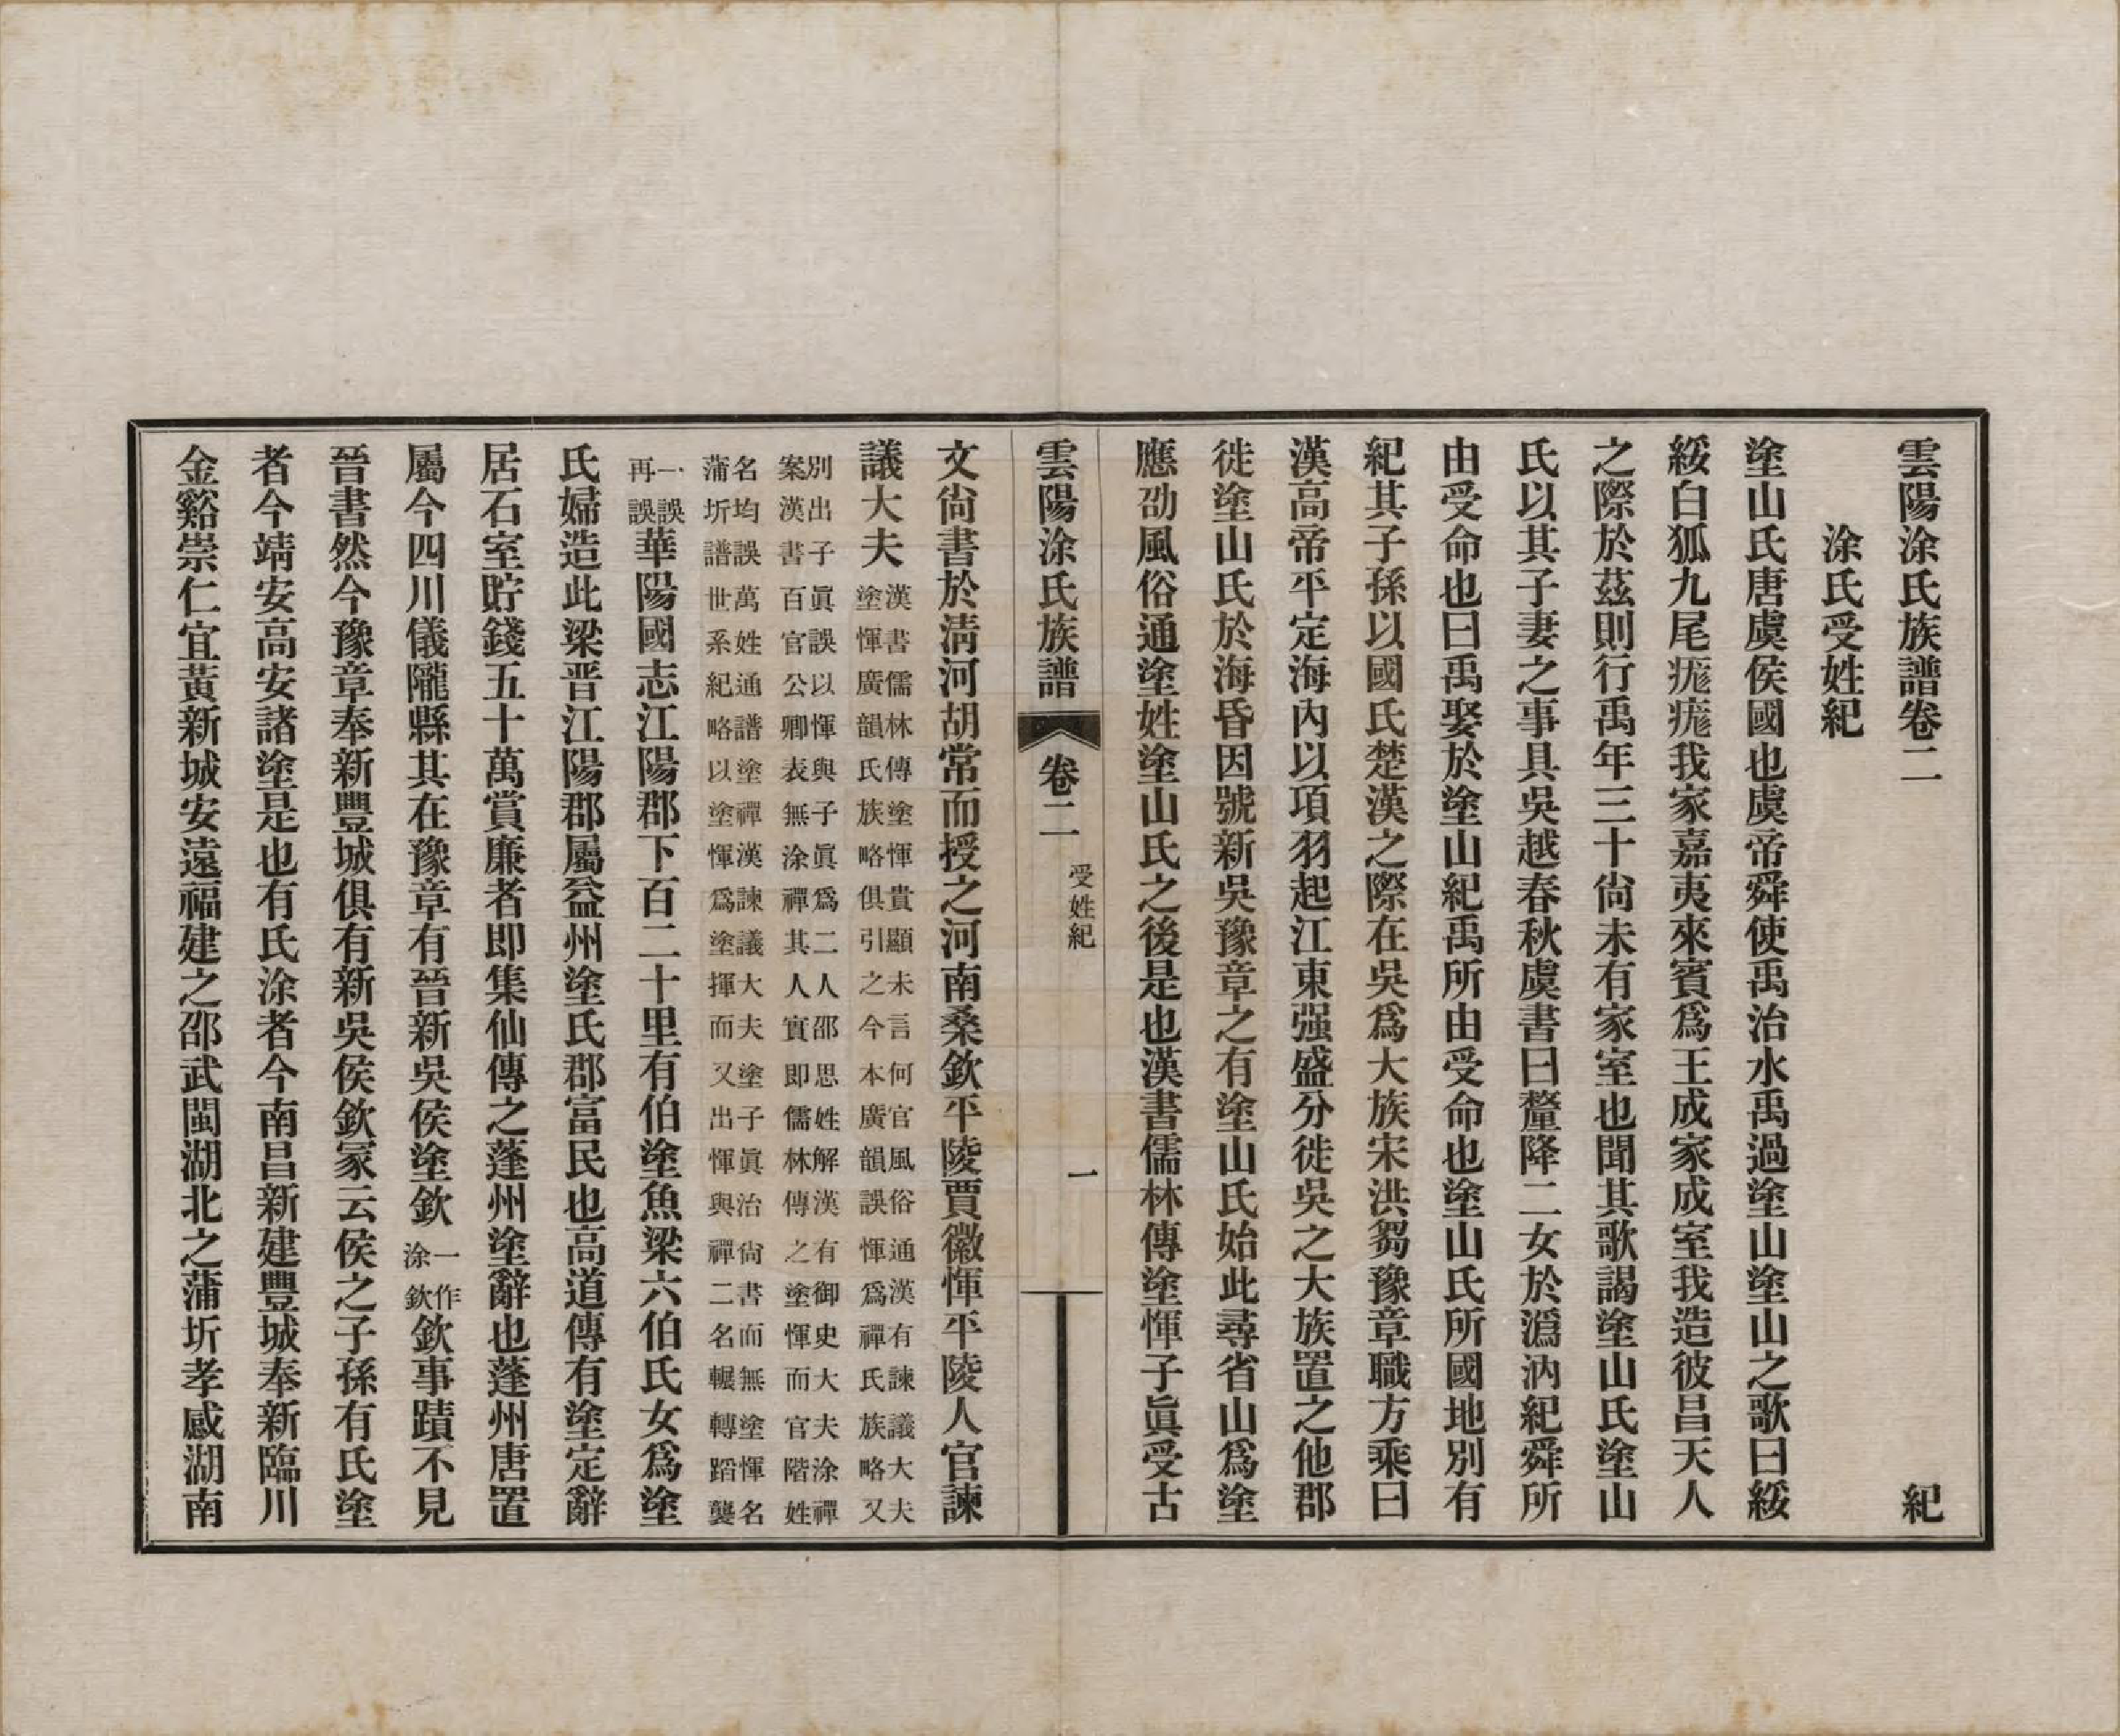 雲陽涂氏族譜卷二 紀
涂氏受姓紀
塗山氏唐虞侯國也虞帝舜使禹治水禹過塗山塗山之歌曰綏
綏白狐九尾痝痝我家嘉夷來賓爲王成家成室我造彼昌天人
之際於茲則行禹年三十尙未有家室也聞其歌謁塗山氏塗山
氏以其子妻之事具吳越春秋虞書曰釐降二女於潙汭紀舜所
由受命也曰禹娶於塗山紀禹所由受命也塗山氏所國地別有
紀其子孫以國氏楚漢之際在吳爲大族宋洪芻豫章職方乘曰
漢高帝平定海內以項羽起江東强盛分徙吳之大族置之他郡
徙塗山氏於海昏因號新吳豫章之有塗山氏始此尋省山爲塗
應劭風俗通塗姓塗山氏之後是也漢書儒林傳塗惲子眞受古
雲陽涂氏族譜 卷二 受姓紀 一
文尙書於淸河胡常而授之河南桑欽平陵賈徽惲平陵人官諫
議大夫 漢書儒林傳塗惲貴顯未言何官風俗通漢有諫議大夫
塗惲廣韻氏族略俱引之今本廣韻誤惲爲禪氏族略又
別出子眞誤以惲與子眞爲二人邵思姓解漢有御史大夫涂禪
案漢書百官公卿表無涂禪其人實即儒林傳之塗惲而官階姓
名均誤萬姓通譜塗禪漢諫議大夫塗子眞治尙書而無塗惲名
蒲圻譜世系紀略以塗惲爲塗揮而又出惲與禪二名輾轉蹈襲
一誤
再誤 華陽國志江陽郡下百二十里有伯塗魚梁六伯氏女爲塗
氏婦造此梁晋江陽郡屬益州塗氏郡富民也高道傳有塗定辭
居石室貯錢五十萬賞廉者即集仙傳之蓬州塗辭也蓬州唐置
屬今四川儀隴縣其在豫章有晉新吳侯塗欽 一作
涂欽 欽事蹟不見
晉書然今豫章奉新豐城俱有新吳侯欽冢云侯之子孫有氏塗
者今靖安高安諸塗是也有氏涂者今南昌新建豐城奉新臨川
金谿崇仁宜黃新城安遠福建之邵武閩湖北之蒲圻孝感湖南